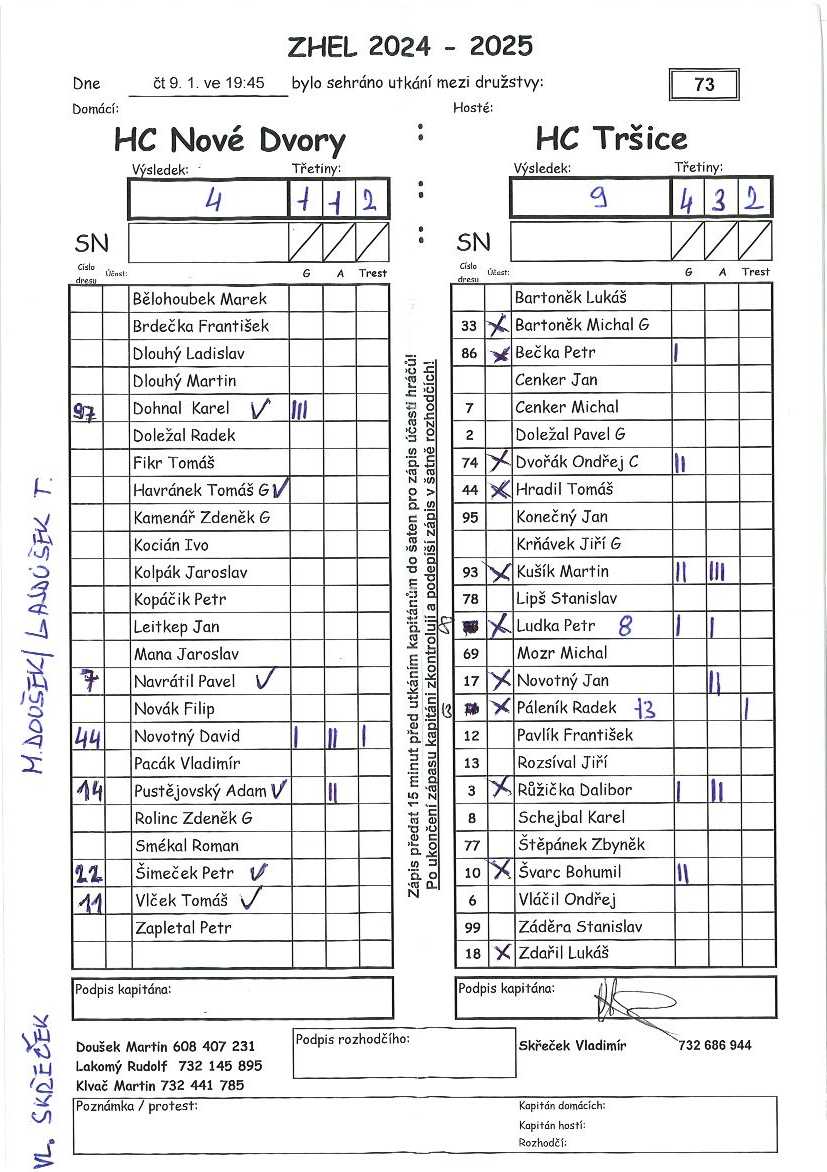 ZHEL 2024 - 2025
Dne čt 9. 1. ve 19:45 bylo sehráno utkání mezi družstvy: 73
Domácí: Hosté:
HC Nové Dvory : HC Tršice
Výsledek: Třetiny: Výsledek: Třetiny:
4 1 1 2 : 9 4 3 2
SN : SN
Číslo dresu Účast: G A Trest
Bělohoubek Marek
Brdečka František
Dlouhý Ladislav
Dlouhý Martin
97 Dohnal Karel ✓ III
Doležal Radek
Fikr Tomáš
Havránek Tomáš G ✓
Kamenář Zdeněk G
Kocián Ivo
Kolpák Jaroslav
Kopáčik Petr
Leitkep Jan
Mana Jaroslav
7 Navrátil Pavel ✓
Novák Filip
44 Novotný David I II I
Pacák Vladimír
14 Pustějovský Adam ✓ II
Rolinc Zdeněk G
Smékal Roman
22 Šimeček Petr ✓
11 Vlček Tomáš ✓
Zapletal Petr
Podpis kapitána:
Zápis předat 15 minut před utkáním kapitánům do šaten pro zápis účasti hráčů!
Po ukončení zápasu kapitáni zkontrolují a podepíší zápis v šatně rozhodčích!
Číslo dresu Účast: G A Trest
Bartoněk Lukáš
33 X Bartoněk Michal G
86 X Bečka Petr I
Cenker Jan
7 Cenker Michal
2 Doležal Pavel G
74 X Dvořák Ondřej C II
44 X Hradil Tomáš
95 Konečný Jan
Krňávek Jiří G
93 X Kušík Martin II III
78 Lipš Stanislav
8 X Ludka Petr 8 I I
69 Mozr Michal
17 X Novotný Jan II
13 X Páleník Radek 13 I
12 Pavlík František
13 Rozsíval Jiří
3 X Růžička Dalibor I II
8 Schejbal Karel
77 Štěpánek Zbyněk
10 X Švarc Bohumil II
6 Vláčil Ondřej
99 Záděra Stanislav
18 X Zdařil Lukáš
Podpis kapitána:
Doušek Martin 608 407 231
Lakomý Rudolf 732 145 895
Klvač Martin 732 441 785
Podpis rozhodčího:
Skřeček Vladimír 732 686 944
Poznámka / protest:
Kapitán domácích:
Kapitán hostí:
Rozhodčí:
M. DOUŠEK/ T.
VL. SKŘEČEK